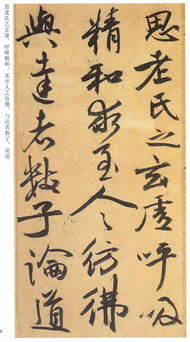 思老氏之玄虚呼吸
精和求至人之彷彿
與達者數子論道
思老氏之玄虚，呼吸精和，求至人之仿佛。与达者数子，论道